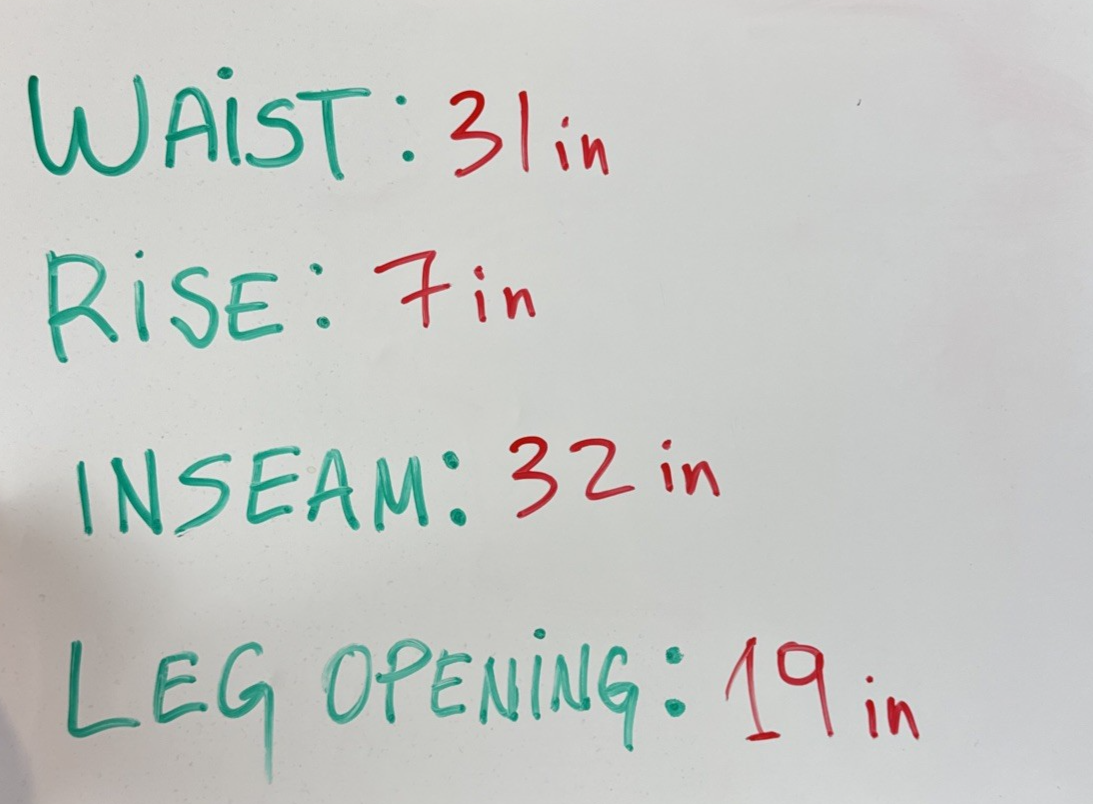 WAiST: 31 in
RiSE: 7 in
INSEAM: 32 in
LEG OPENiNG: 19 in